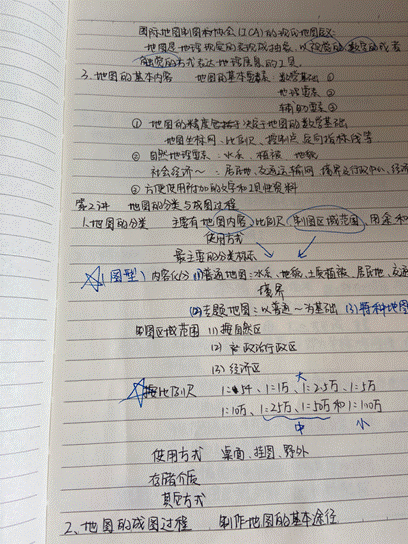 国际地图制图协会(ICA)的现代地图定义:
地图是地理现实的表现或抽象,以视觉的、数字的或者
触觉的方式表达地理信息的工具。
3.地图的基本内容 地图的基本要素:数学基础 ①
地理要素 ②
辅助要素 ③
① 地图的精度包括于决于地图的数学基础
地图坐标网、比例尺、控制点、定向指标线等
② 自然地理要素:水系、植被、地貌
社会经济~:居民地、交通运输网、境界及行政中心、经济
③ 方便使用附加的文字和工具性资料
第2讲 地图的分类与成图过程
1.地图的分类 主要有地图内容、比例尺、制图区域范围、用途和
使用方式
最主要的分类标志
(图型) 内容化分 (1)普通地图:水系、地貌、土质植被、居民地、交通
境界
(2)专题地图:以普通~为基础 (3)特种地图
制图区域范围 (1)按自然区
(2) 政治行政区
(3) 经济区
按比例尺 1:5千、1:1万、1:2.5万、1:5万
大
1:10万、1:25万、1:50万和1:100万
中 小
使用方式 桌面、挂图、野外
存储介质
其它方式
2、地图的成图过程 制作地图的基本途径